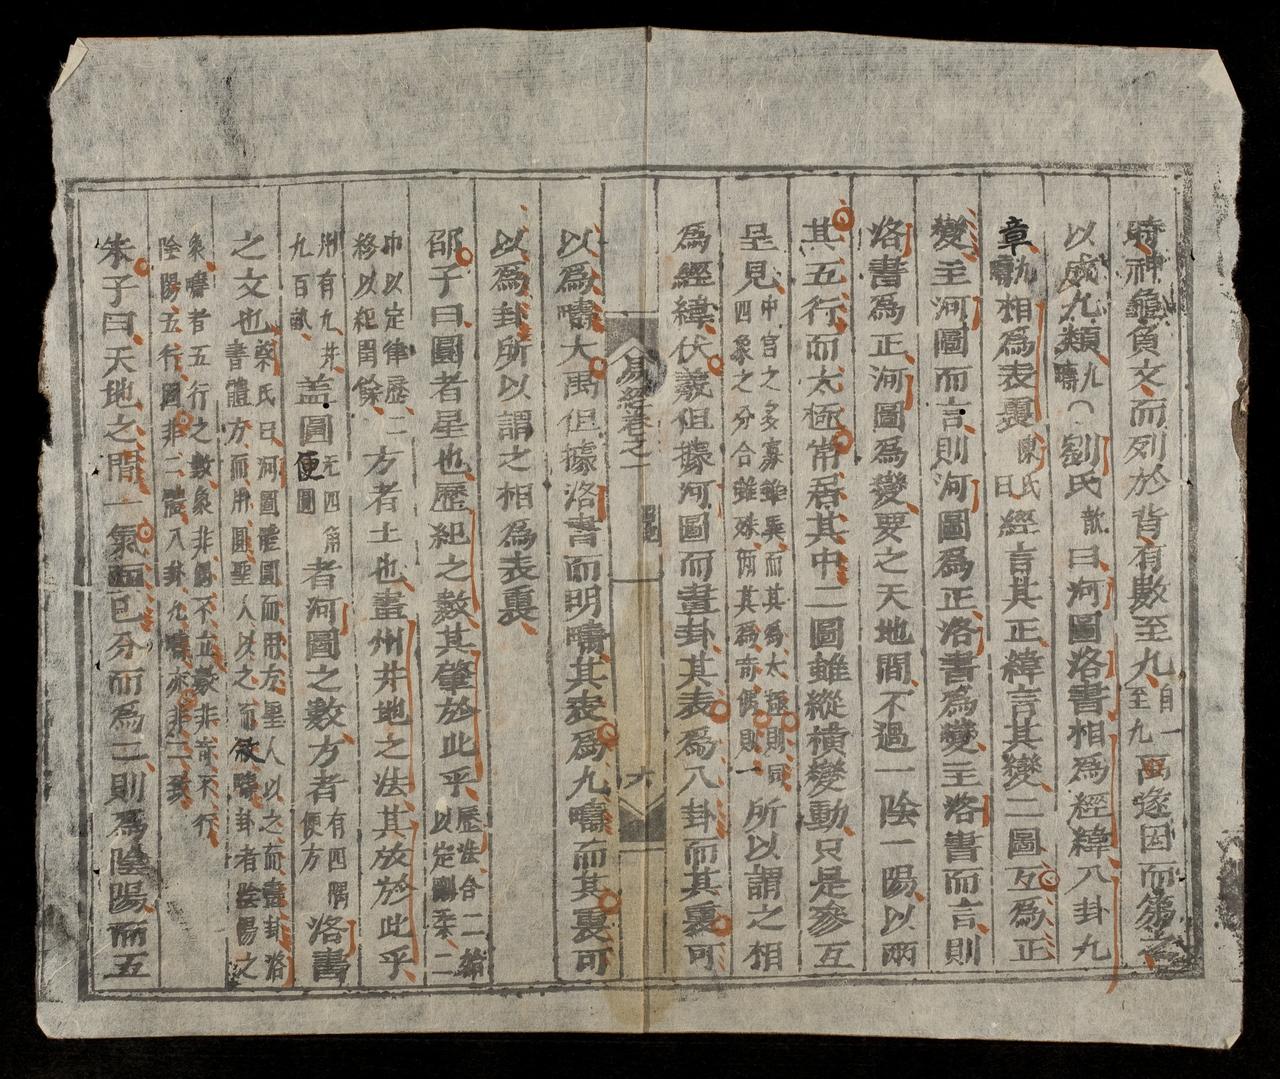 時神龜負文而列於背有數至九自一至九禹遂因而第之
以成九類九疇劉氏歆曰河圖洛書相爲經緯八卦九
章九疇相爲表裏陳氏曰經言其正緯言其變二圖互爲正
變主河圖而言則河圖爲正洛書爲變主洛書而言則
洛書爲正河圖爲變要之天地間不過一陰一陽以兩
其五行而太極常居其中二圖雖縱橫變動只是參互
呈見中宮之多寡雖異而其爲太極則同四象之分合雖殊而其爲奇偶則一所以謂之相
爲經緯伏羲但據河圖而畫卦其表爲八卦而其裏可
易經卷之一
六
以爲疇大禹但據洛書而明疇其表爲九疇而其裏可
以爲卦所以謂之相爲表裏
邵子曰圓者星也歷紀之數其肇於此乎歷法合二始以定剛柔二
中以定律歷二終以紀閏餘方者土也畫州井地之法其放於此乎
州有九井九百畝盖圓无四角便圓者河圖之數方者有四隅便方洛書
之文也蔡氏曰河圖體圓而用方聖人以之而畫卦洛書體方而用圓聖人以之而叙疇卦者陰陽之
象疇者五行之數象非偶不立數非奇不行陰陽五行固非二體八卦九疇亦非二致
朱子曰天地之間一氣而已分而爲二則爲陰陽而五